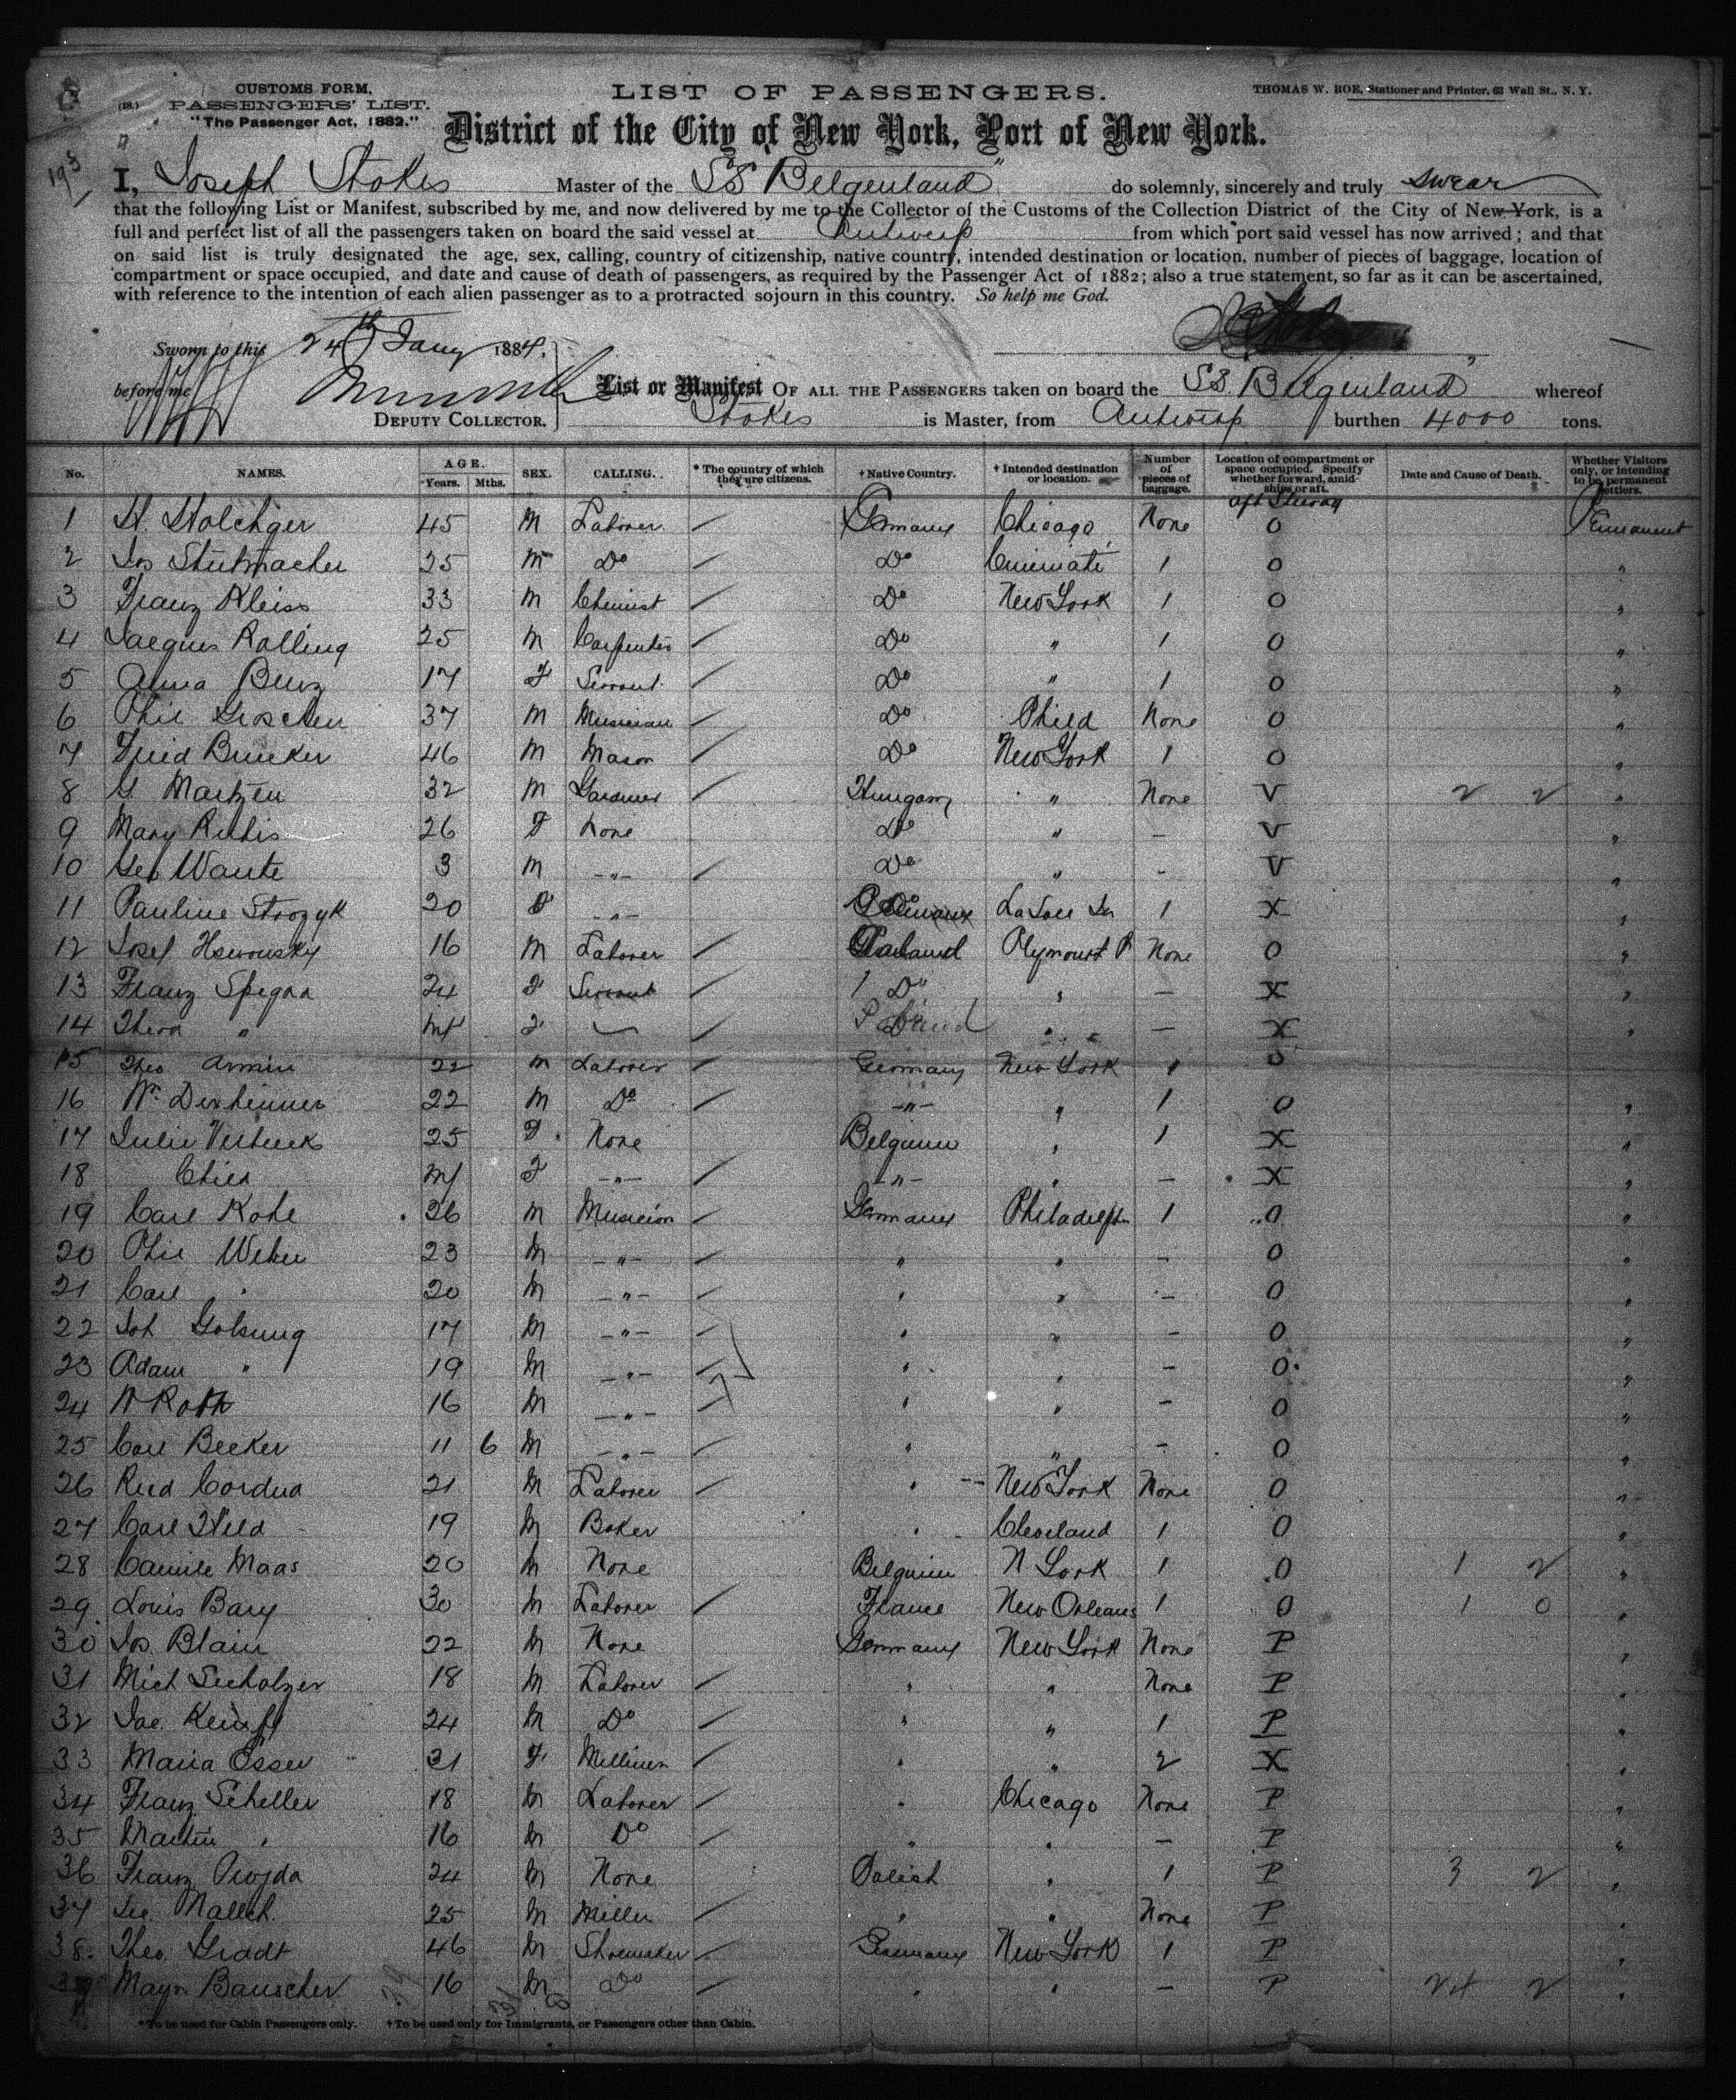 CUSTOMS FORM,
(18.) PASSENGERS' LIST.
"The Passenger Act, 1882."
LIST OF PASSENGERS.
THOMAS W. ROE, Stationer and Printer, 63 Wall St., N. Y.
District of the City of New York, Port of New York.
195
I, Joseph Stokes Master of the SS Belgenland" do solemnly, sincerely and truly swear
that the following List or Manifest, subscribed by me, and now delivered by me to the Collector of the Customs of the Collection District of the City of New York, is a
full and perfect list of all the passengers taken on board the said vessel at Antwerp from which port said vessel has now arrived; and that
on said list is truly designated the age, sex, calling, country of citizenship, native country, intended destination or location, number of pieces of baggage, location of
compartment or space occupied, and date and cause of death of passengers, as required by the Passenger Act of 1882; also a true statement, so far as it can be ascertained,
with reference to the intention of each alien passenger as to a protracted sojourn in this country. So help me God.
Sworn to this 24th Jany 1884.
before me
DEPUTY COLLECTOR.
List or Manifest OF ALL THE PASSENGERS taken on board the SS. Belgenland" whereof
Stokes is Master, from Antwerp burthen 4000 tons.
No. NAMES. AGE. Years. Mths. SEX. CALLING. * The country of which they are citizens. † Native Country. † Intended destination or location. Number of pieces of baggage. Location of compartment or space occupied. Specify whether forward, amidships or aft. Date and Cause of Death. Whether Visitors only, or intending to be permanent settlers.
aft
1 H. 45 M Laborer / Germany Chicago None O Permanent
2 Jos Stutmacher 25 M Do / Do Cincinnati 1 O "
3 Franz Kleiss 33 M Chemist / Do New York 1 O "
4 Jacques Rolling 25 M Carpenter / Do " 1 O "
5 Anna Benz 17 F Servant / Do " 1 O "
6 Phil Groschen 37 M Musician / Do Phild None O "
7 Fried Brucker 46 M Mason / Do New York 1 O "
8 G. Martzen 32 M Gardner / Hungary " None V 2 2 "
9 Mary Ruhis 26 F None Do " - V "
10 Geo Wante 3 M -"- / Do " - V "
11 Pauline Strozyk 20 F -"- La Salle 1 X "
12 Josef 16 M Laborer / Poland Plymouth P None O "
13 Franz Spegna 24 F Servant / Do " - X "
14 " F / Poland " - X "
15 Theo Armin 22 M Laborer / Germany New York 1 O
16 Wm Dexheimer 22 M Do / -"- " 1 O "
17 Julie Verbeeck 25 F None Belgium " 1 X "
18 Child F -"- / -"- " - X "
19 Carl Kohl 26 M Musician / Germany Philadelph 1 O "
20 Phil Weber 23 M -"- / " " - O "
21 Carl " 20 M -"- / " " - O "
22 Joh Golsung 17 M -"- / " " - O "
23 Adam " 19 M -"- / " " - O "
24 W Roth 16 M -"- / " " - O "
25 Carl Becker 11 6 M -"- / " " - O "
26 Rud Cordua 21 M Laborer / " New York None O "
27 Carl Wild 19 M Baker " Cleveland 1 O "
28 Camile Maas 20 M None Belgium N York 1 O 1 2 "
29 Louis Bary 30 M Laborer / France New Orleans 1 O 1 0 "
30 Jos. Blain 22 M None Germany New York None P "
31 Mich Seeholzer 18 M Laborer / " " None P "
32 Jac. Kempf 24 M Do / " " 1 P "
33 Maria Esser 31 F Milliner / " " 2 X "
34 Franz Scheller 18 M Laborer / " Chicago None P "
35 Martin " 16 M Do / " " - P "
36 Franz 24 M None Polish " 1 P 3 2 "
37 25 M Miller / " " None P "
38. Theo. Gradt 46 M Shoemaker / Germany New York 1 P "
39 Bauscher 16 M Do / " " - P 24 2 "
* To be used for Cabin Passengers only. † To be used only for Immigrants, or Passengers other than Cabin.